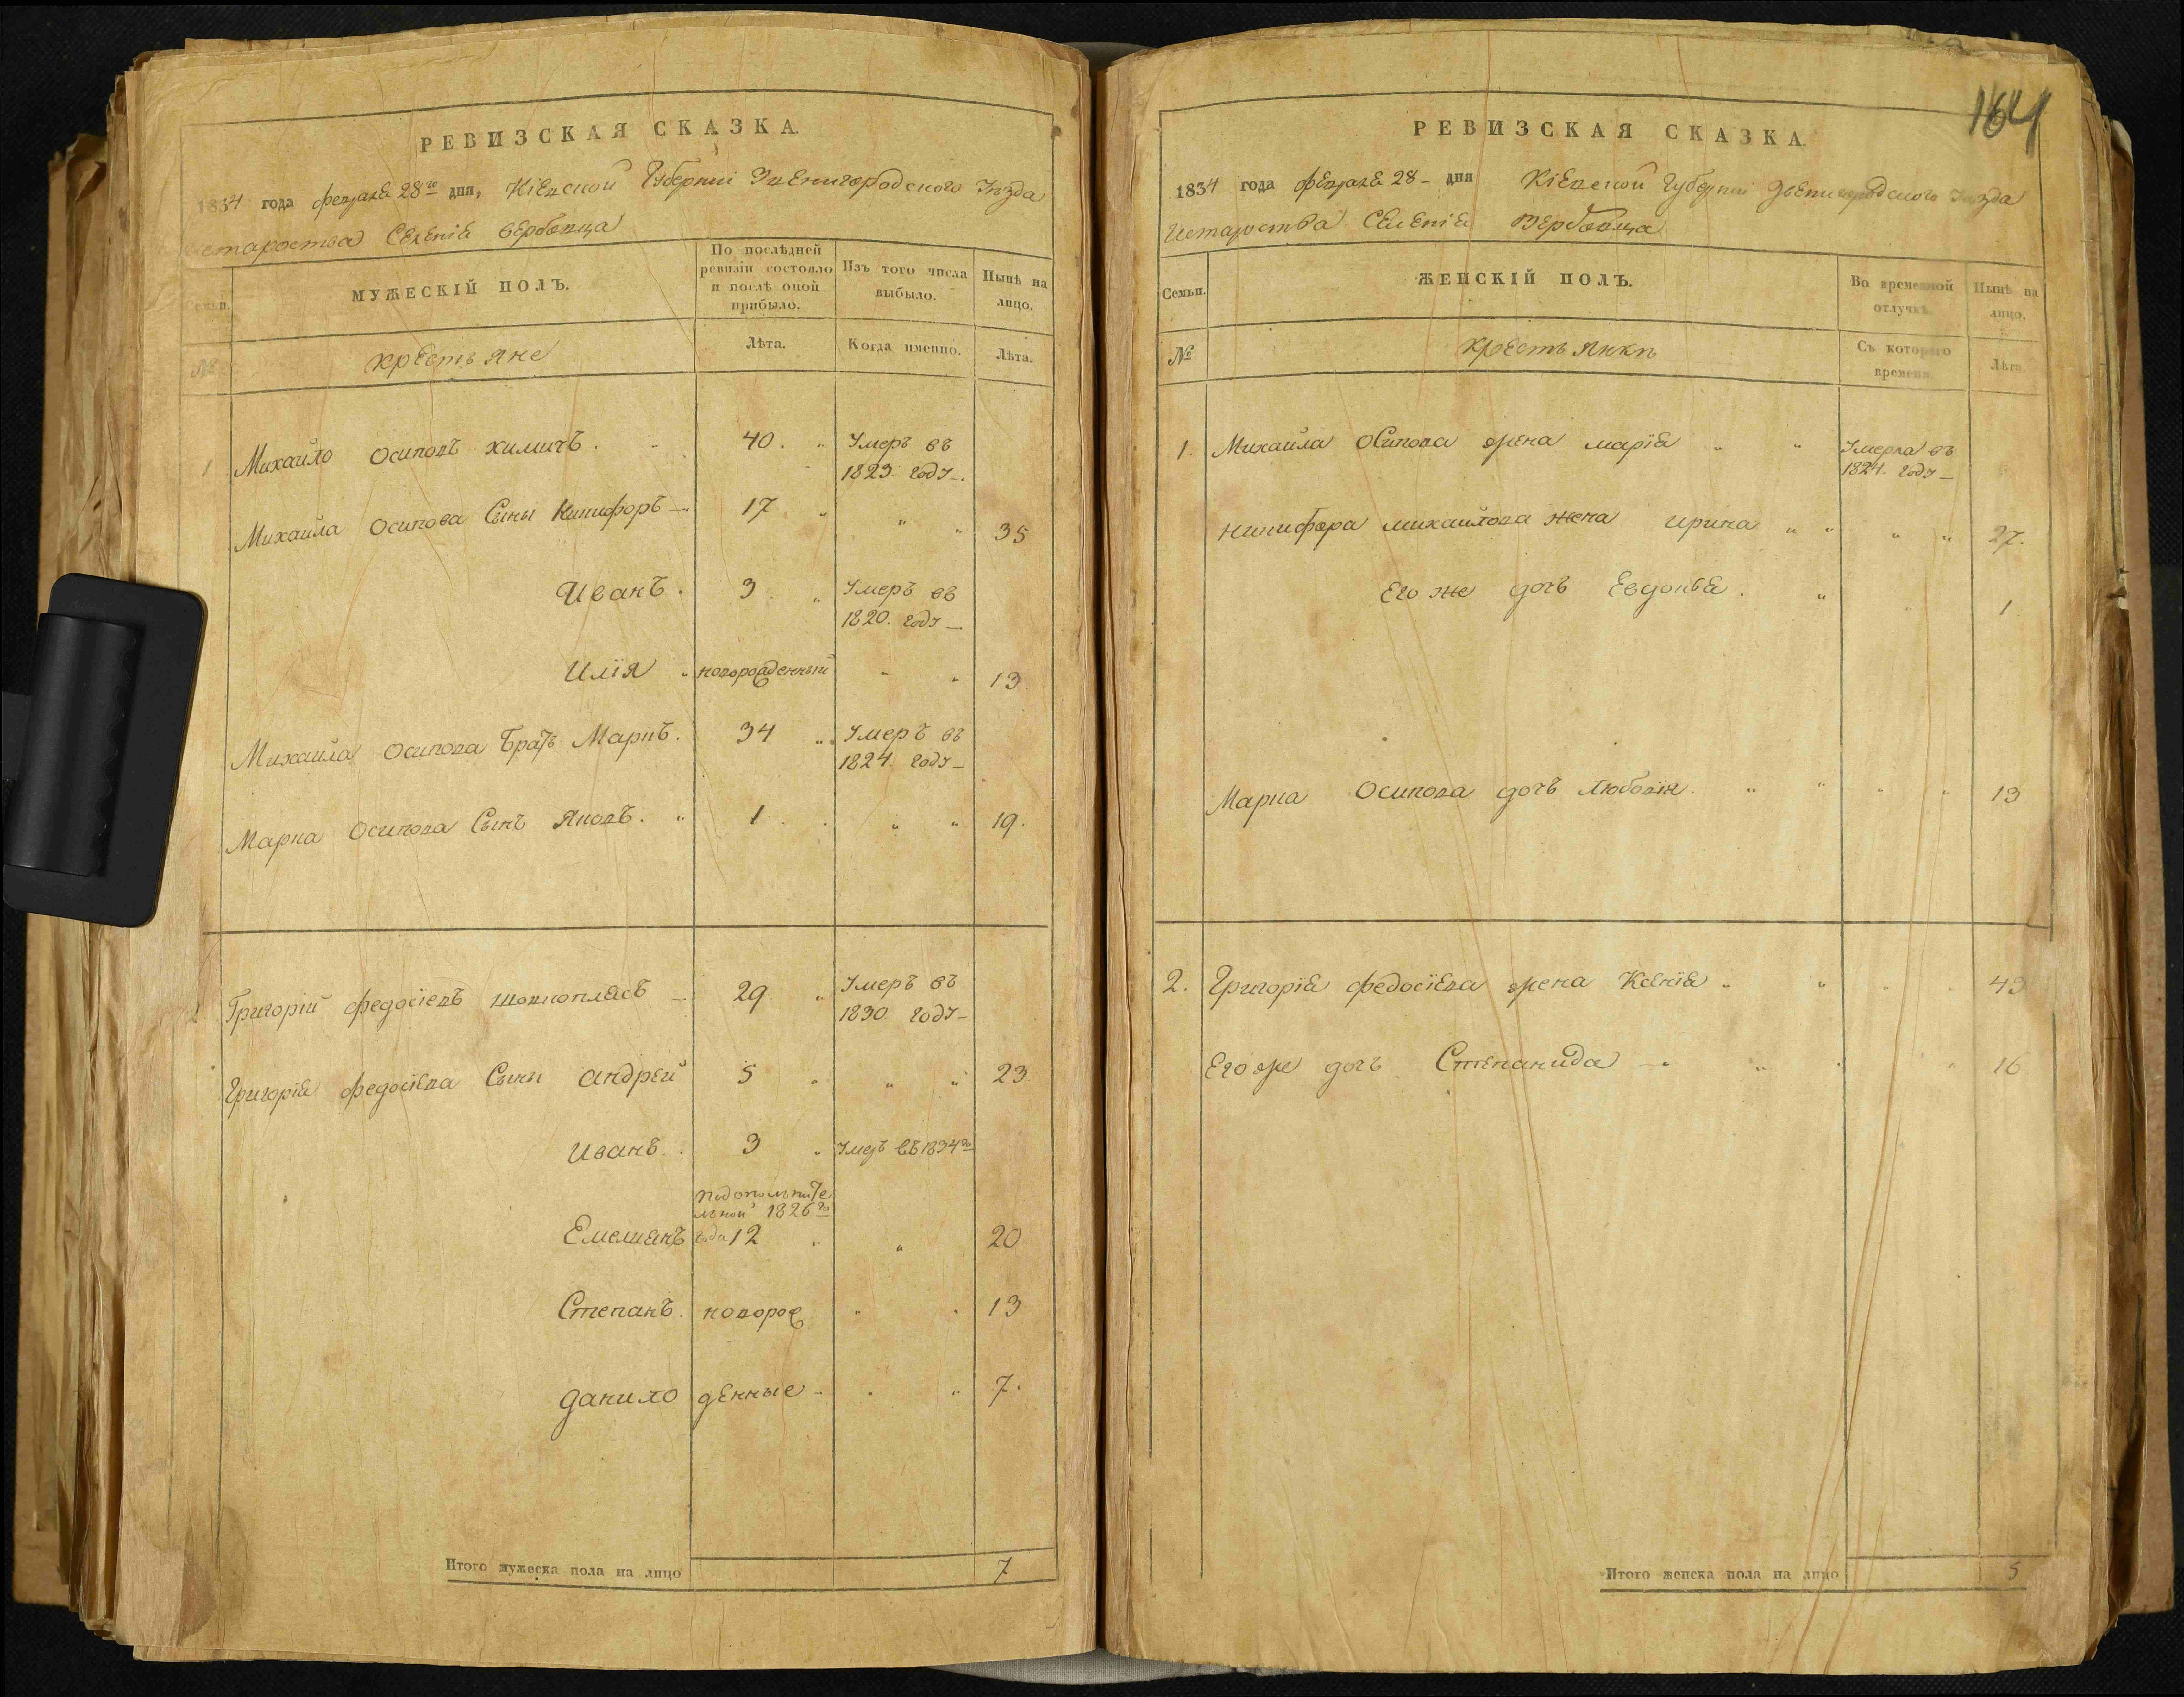 РЕВИЗСКАЯ СКАЗКА.
1834 года февраля 28го дня, Кіевской Губерніи Звенигородского Уезда
староства Селенія вербовца
Семьи.
МУЖЕСКІЙ ПОЛЪ.
По послѣдней ревизіи состояло и послѣ оной прибыло.
Изъ того числа выбыло.
Нынѣ на лицо.
№
крестьяне
Лѣта.
Когда именно.
Лѣта.
1 Михайло осиповъ химичъ. 40. Умеръ въ
1823. году
Михайла осипова Сыны Никифоръ 17 " " 35
Иванъ. 3 Умеръ въ
1820. году
Илія новорожденный " " 13
Михайла осипова братъ Маркъ. 34 Умеръ въ
1824. году
Марка осипова Сынъ Яковъ. 1 " " 19.
2 Григорій федосіевъ шовкоплясъ 29 Умеръ въ
1830. году
Григорія федосіева Сыны андрей 5 " " 23
Иванъ. 3 Умеръ въ 1834го
подополните
льной 1826го
Емельянъ года 12 " 20
Степанъ. новорож 13
данило денные 7.
Итого мужеска пола на лицо 7
164
РЕВИЗСКАЯ СКАЗКА.
1834 года февраля 28 дня Кіевской Губерніи Звенигородского Уезда
староства Селенія Вербовца
Семьи.
ЖЕНСКІЙ ПОЛЪ.
Во временной отлучкѣ
Нынѣ на лицо.
№
крестьянки
Съ котораго времени
Лѣта
1. Михайла осипова жена марія " " Умерла въ
1824. году
никифора михайлова жена ирина " " " " 27.
Его же дочь Евдокія. " 1
Марка осипова дочь Любовія. " " " " 13
2. Григорія федосіева жена Ксенія " " 43
Его же дочь Степанида " 16
Итого женска пола на лицо 5